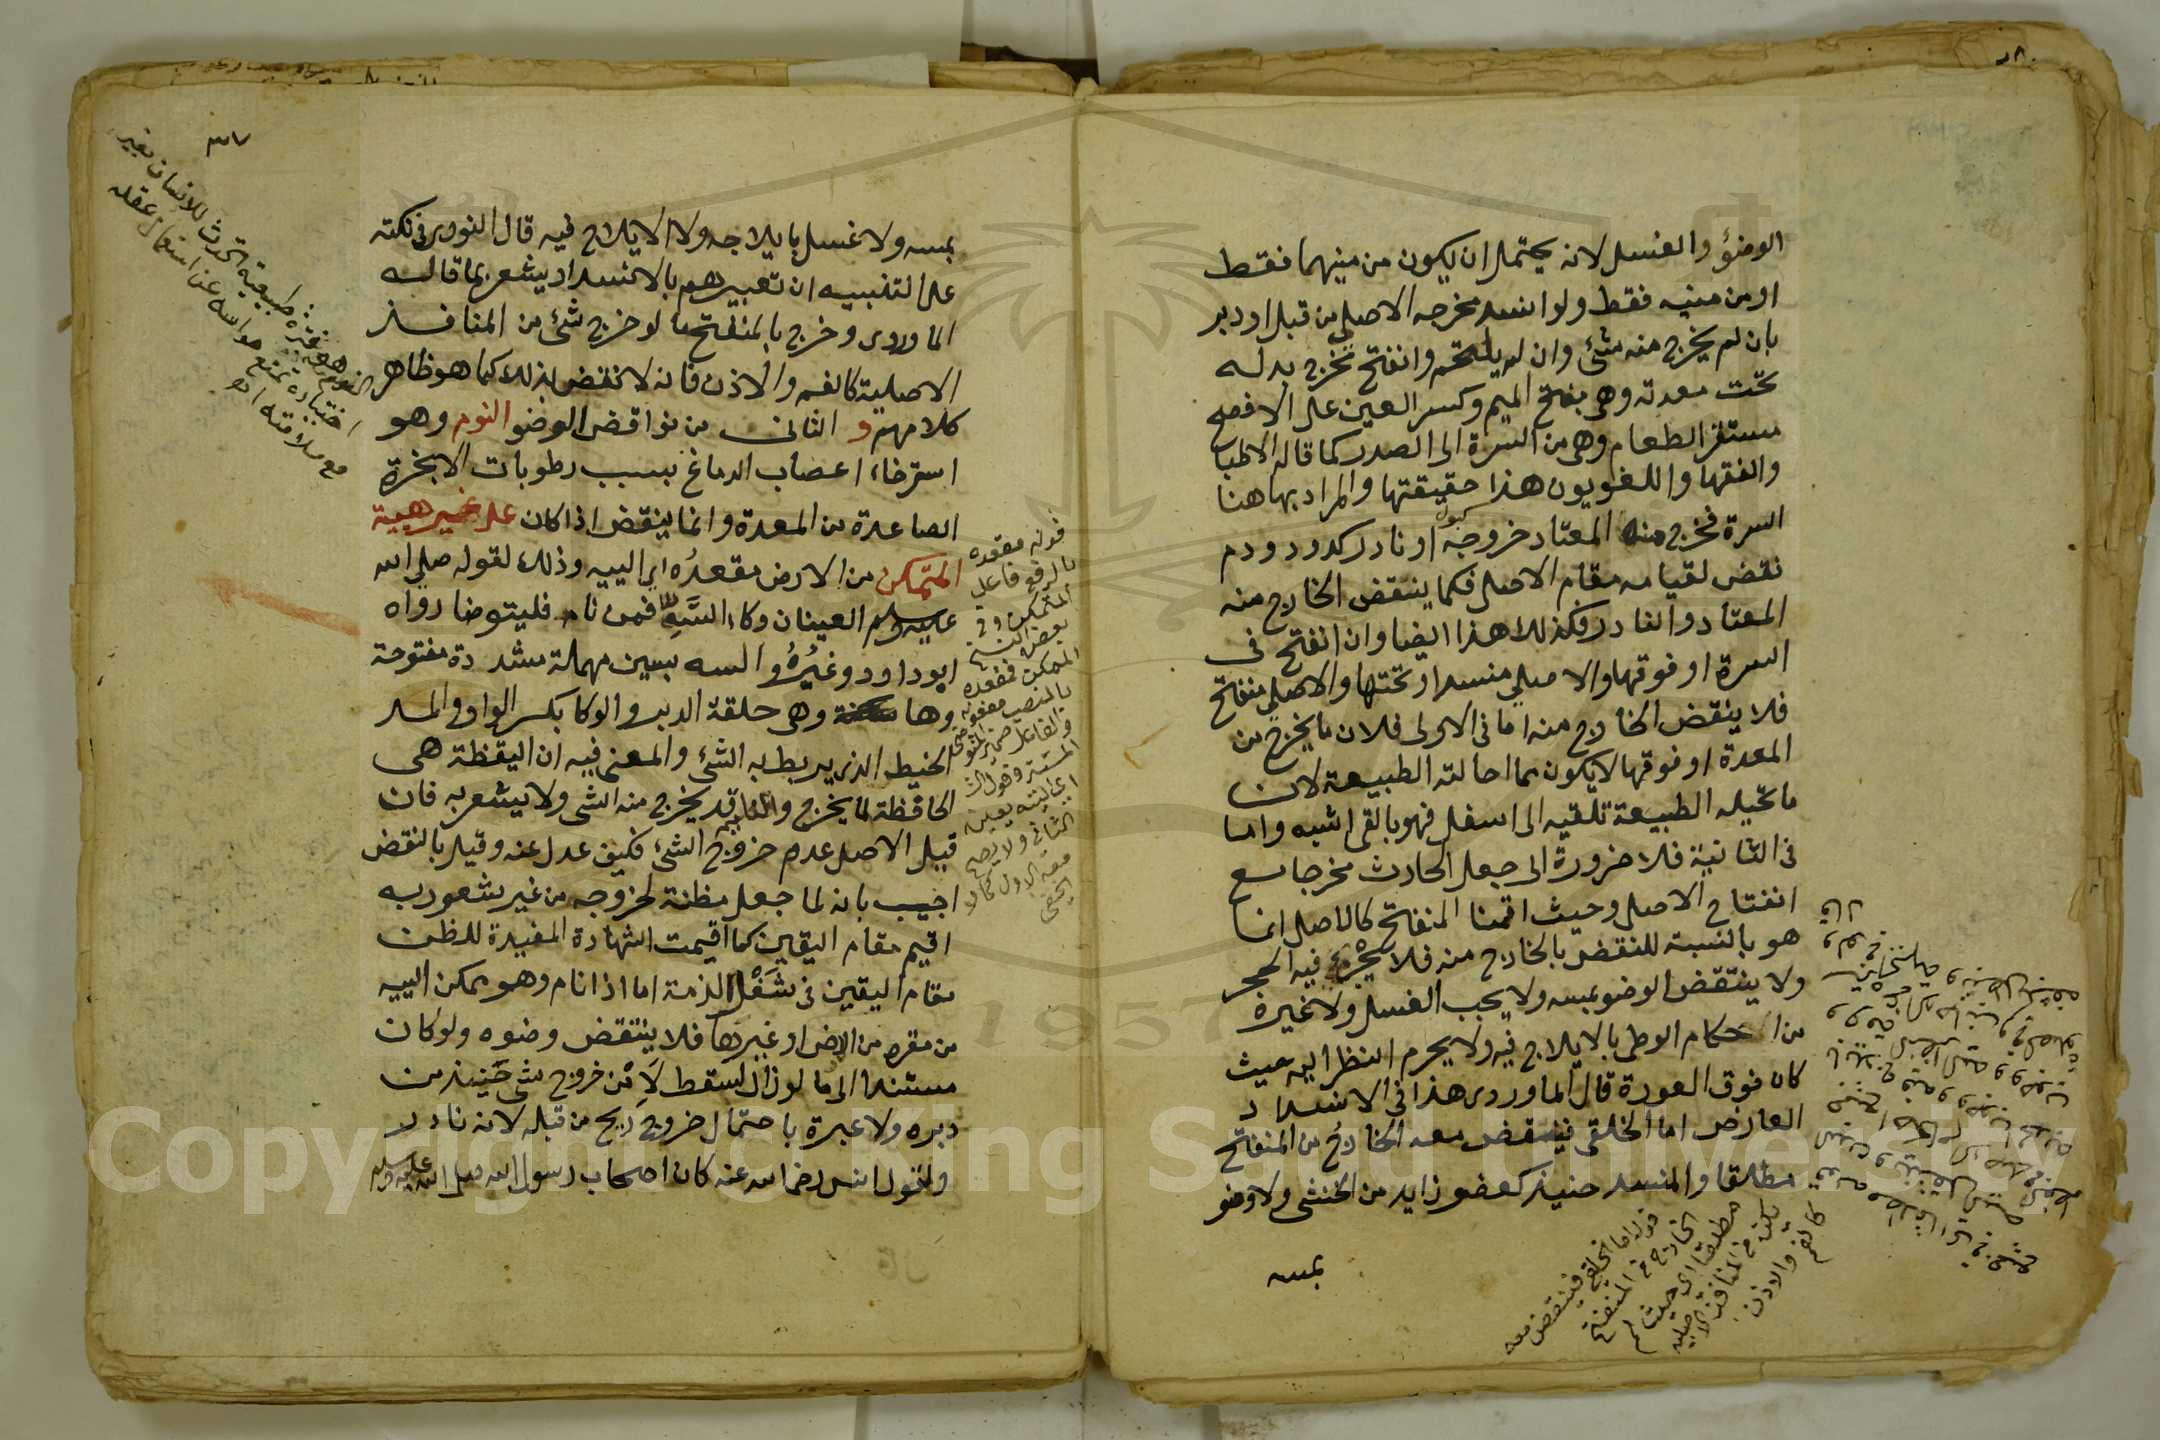 الوضؤ والغسل لانه يحتمل ان يكون من منيهما فقط
او من منيه فقط ولو انسد مخرجه الاصلي من قبل او دبر
بان لم يخرج منه شئ وان لم يلتحم وانفتح مخرج بدله
تحت معدته وهي بفتح الميم وكسر العين على الافصح
مستقر الطعام وهي من السرة الى الصدر كما قاله الاطبا
والفقها واللغويون هذا حقيقتها والمراد بها هنا
السرة فخرج منه المعتاد خروجه او نادر كدود ودم
كبول
نقض لقيامه مقام الاصلي فكما ينتقض الخارج منه
المعتاد والنادر فكذلك هذا ايضا وان انفتح في
السرة او فوقها والاصلي منسد او تحتها والاصلي منفتح
فلا ينقض الخارج منه اما في الاولى فلان ما يخرج من
المعدة او فوقها لا يكون مما احالته الطبيعة لان
ما تحيله الطبيعة تلقيه الى اسفل فهو بالقي اشبه واما
في الثانية فلا ضرورة الى جعل الحادث مخرجا مع
انفتاح الاصلي وحيث اقمنا المنفتح كالاصلي انما
هو بالنسبة للنقض بالخارج منه فلا يجزي فيه الحجر
ولا ينتقض الوضو بمسه ولا يجب الغسل ولا غيره
من احكام الوطي بالايلاج فيه ولا يحرم النظر اليه حيث
كان فوق العورة قال الماوردي هذا في الانسداد
العارض اما الخلقي فينقض معه الخارج من المنفتح
مطلقا والمنسد حينئذ كعضو زايد من الخنثى ولا وضو
بمسه
قوله اما الخلقي فينقض معه
الخارج من المنفتح
مطلقا اي حيث لم
يكن من المنافذ الاصلية
كالفم والاذن
٣٧
بمسه ولا غسل بايلاجه ولا الايلاج فيه قال النووي في نكته
على التنبيه ان تعبيرهم بالانسداد يشعر بما قاله
الماوردي وخرج بالمنفتح ما لو خرج شئ من المنافذ
الاصلية كالفم والاذن فانه لا نقض بذلك كما هو ظاهر
كلامهم و الثاني من نواقض الوضو النوم وهو
استرخاء اعصاب الدماغ بسبب رطوبات الابخرة
الصاعدة من المعدة وانما ينقض اذا كان على غير هيية
المتمكن من الارض مقعده اي الييه وذلك لقوله صلى الله
عليه وسلم العينان وكاء السه فمن نام فليتوضا رواه
ابو داود وغيره والسه بسين مهملة مشددة مفتوحة
وها وهي حلقة الدبر والوكا بكسر الواو والمد
الخيط الذي يربط به الشئ والمعنى فيه ان اليقظة هي
الحافظة لما يخرج والنايم قد يخرج منه الشى ولا يشعر به فان
قيل الاصل عدم خروج الشئ فكيف عدل عنه وقيل بالنقض
اجيب بانه لما جعل مظنة لخروجه من غير شعور به
اقيم مقام اليقين كما اقيمت الشهادة المفيدة للظن
مقام اليقين في شغل الذمة اما اذا نام وهو ممكن الييه
من مقره من الارض او غيرها فلا ينتقض وضوه ولو كان
مستندا الى ما لو زال لسقط لامن خروج شى حينيذ من
دبره ولا عبرة باحتمال خروج ريح من قبله لانه نادر
ولقول انس رضى الله عنه كان اصحاب رسول الله صلى الله عليه وسلم
قوله مقعده
بالرفع فاعل
المتمكن وفي
بعض النسخ
الممكن فمقعده
بالنصب مفعوله
والفاعل ضمير المتوضي
طبيعية تحدث للانسان بغير
اختياره تمنع حواسه عن استعمال عقله
مع سلامته
Copyright © King Saud University
1957